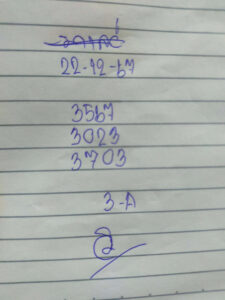 22-12-67
3567
3023
3703
3-A